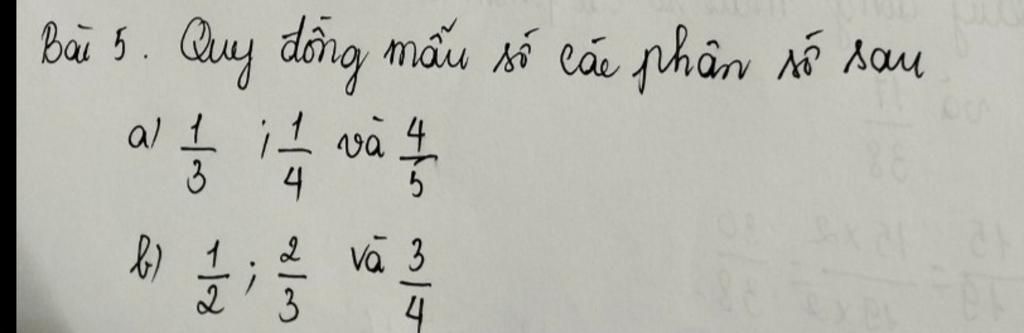 Bài 5. Quy đồng mẫu số các phân số sau
a) 1/3 ; 1/4 và 4/5
b) 1/2 ; 2/3 và 3/4